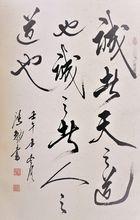 誠者天之道
也誠之者人之
道也
壬午年月
書